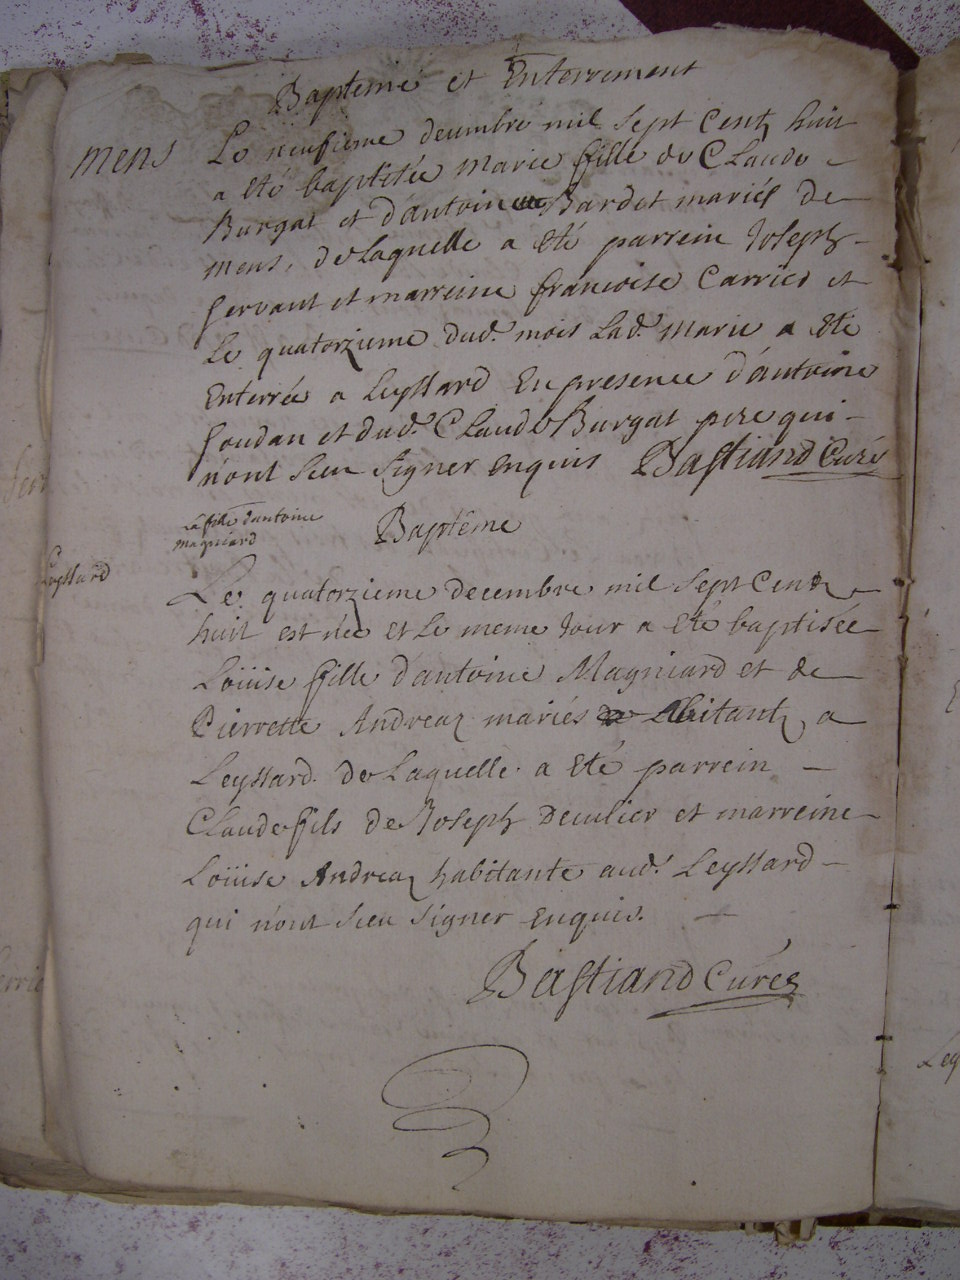 Baptême et Enterrement
mens
Le neufieme decembre mil sept Centz huit
a eté baptisée Marie ffille de Claude
Burgat et d'antoinette Bardet mariés de
mens, de Laquelle a eté parrein Joseph
servant et marreine francoise Carrier et
Le quatorzieme dud. mois Lad. Marie a eté
Enterrée a Leyssard En presence d'antoine
soudan et dud. Claude Burgat pere qui
n'ont sceu signer enquis Bastiand Curé
La fille d'antoine
magniard
Baptême
Leyssard
Le quatorzieme decembre mil sept Centz
huit est née et Le meme Jour a eté baptisée
Loüise ffille d'antoine Magniard et de
Pierrette Andreaz mariés habitantz a
Leyssard. de Laquelle a eté parrein
Claude fils de Joseph Deculier et marreine
Loüise Andreaz habitante aud. Leyssard
qui n'ont sceu signer enquis.
Bastiand Curéz